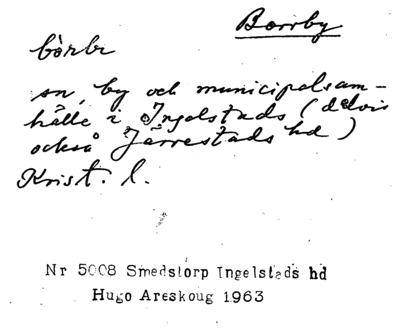 Borrby
bòrbi
sn, by och municipalsam-
hälle i Ingelstads (delvis
också Järrestads hd)
Krist. l.
Nr 5008 Smedstorp Ingelstads hd
Hugo Areskoug 1963